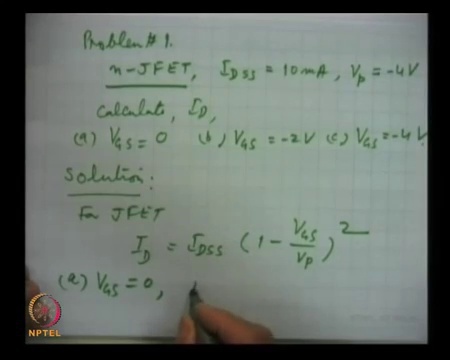 Problem# 1.
n-JFET, I_DSS = 10mA, V_P = -4V
Calculate, I_D,
(a) V_GS = 0 (b) V_GS = -2V (c) V_GS = -4V.
Solution:
For JFET
I_D = I_DSS (1 - V_GS/V_P)^2
(a) V_GS = 0,
NPTEL